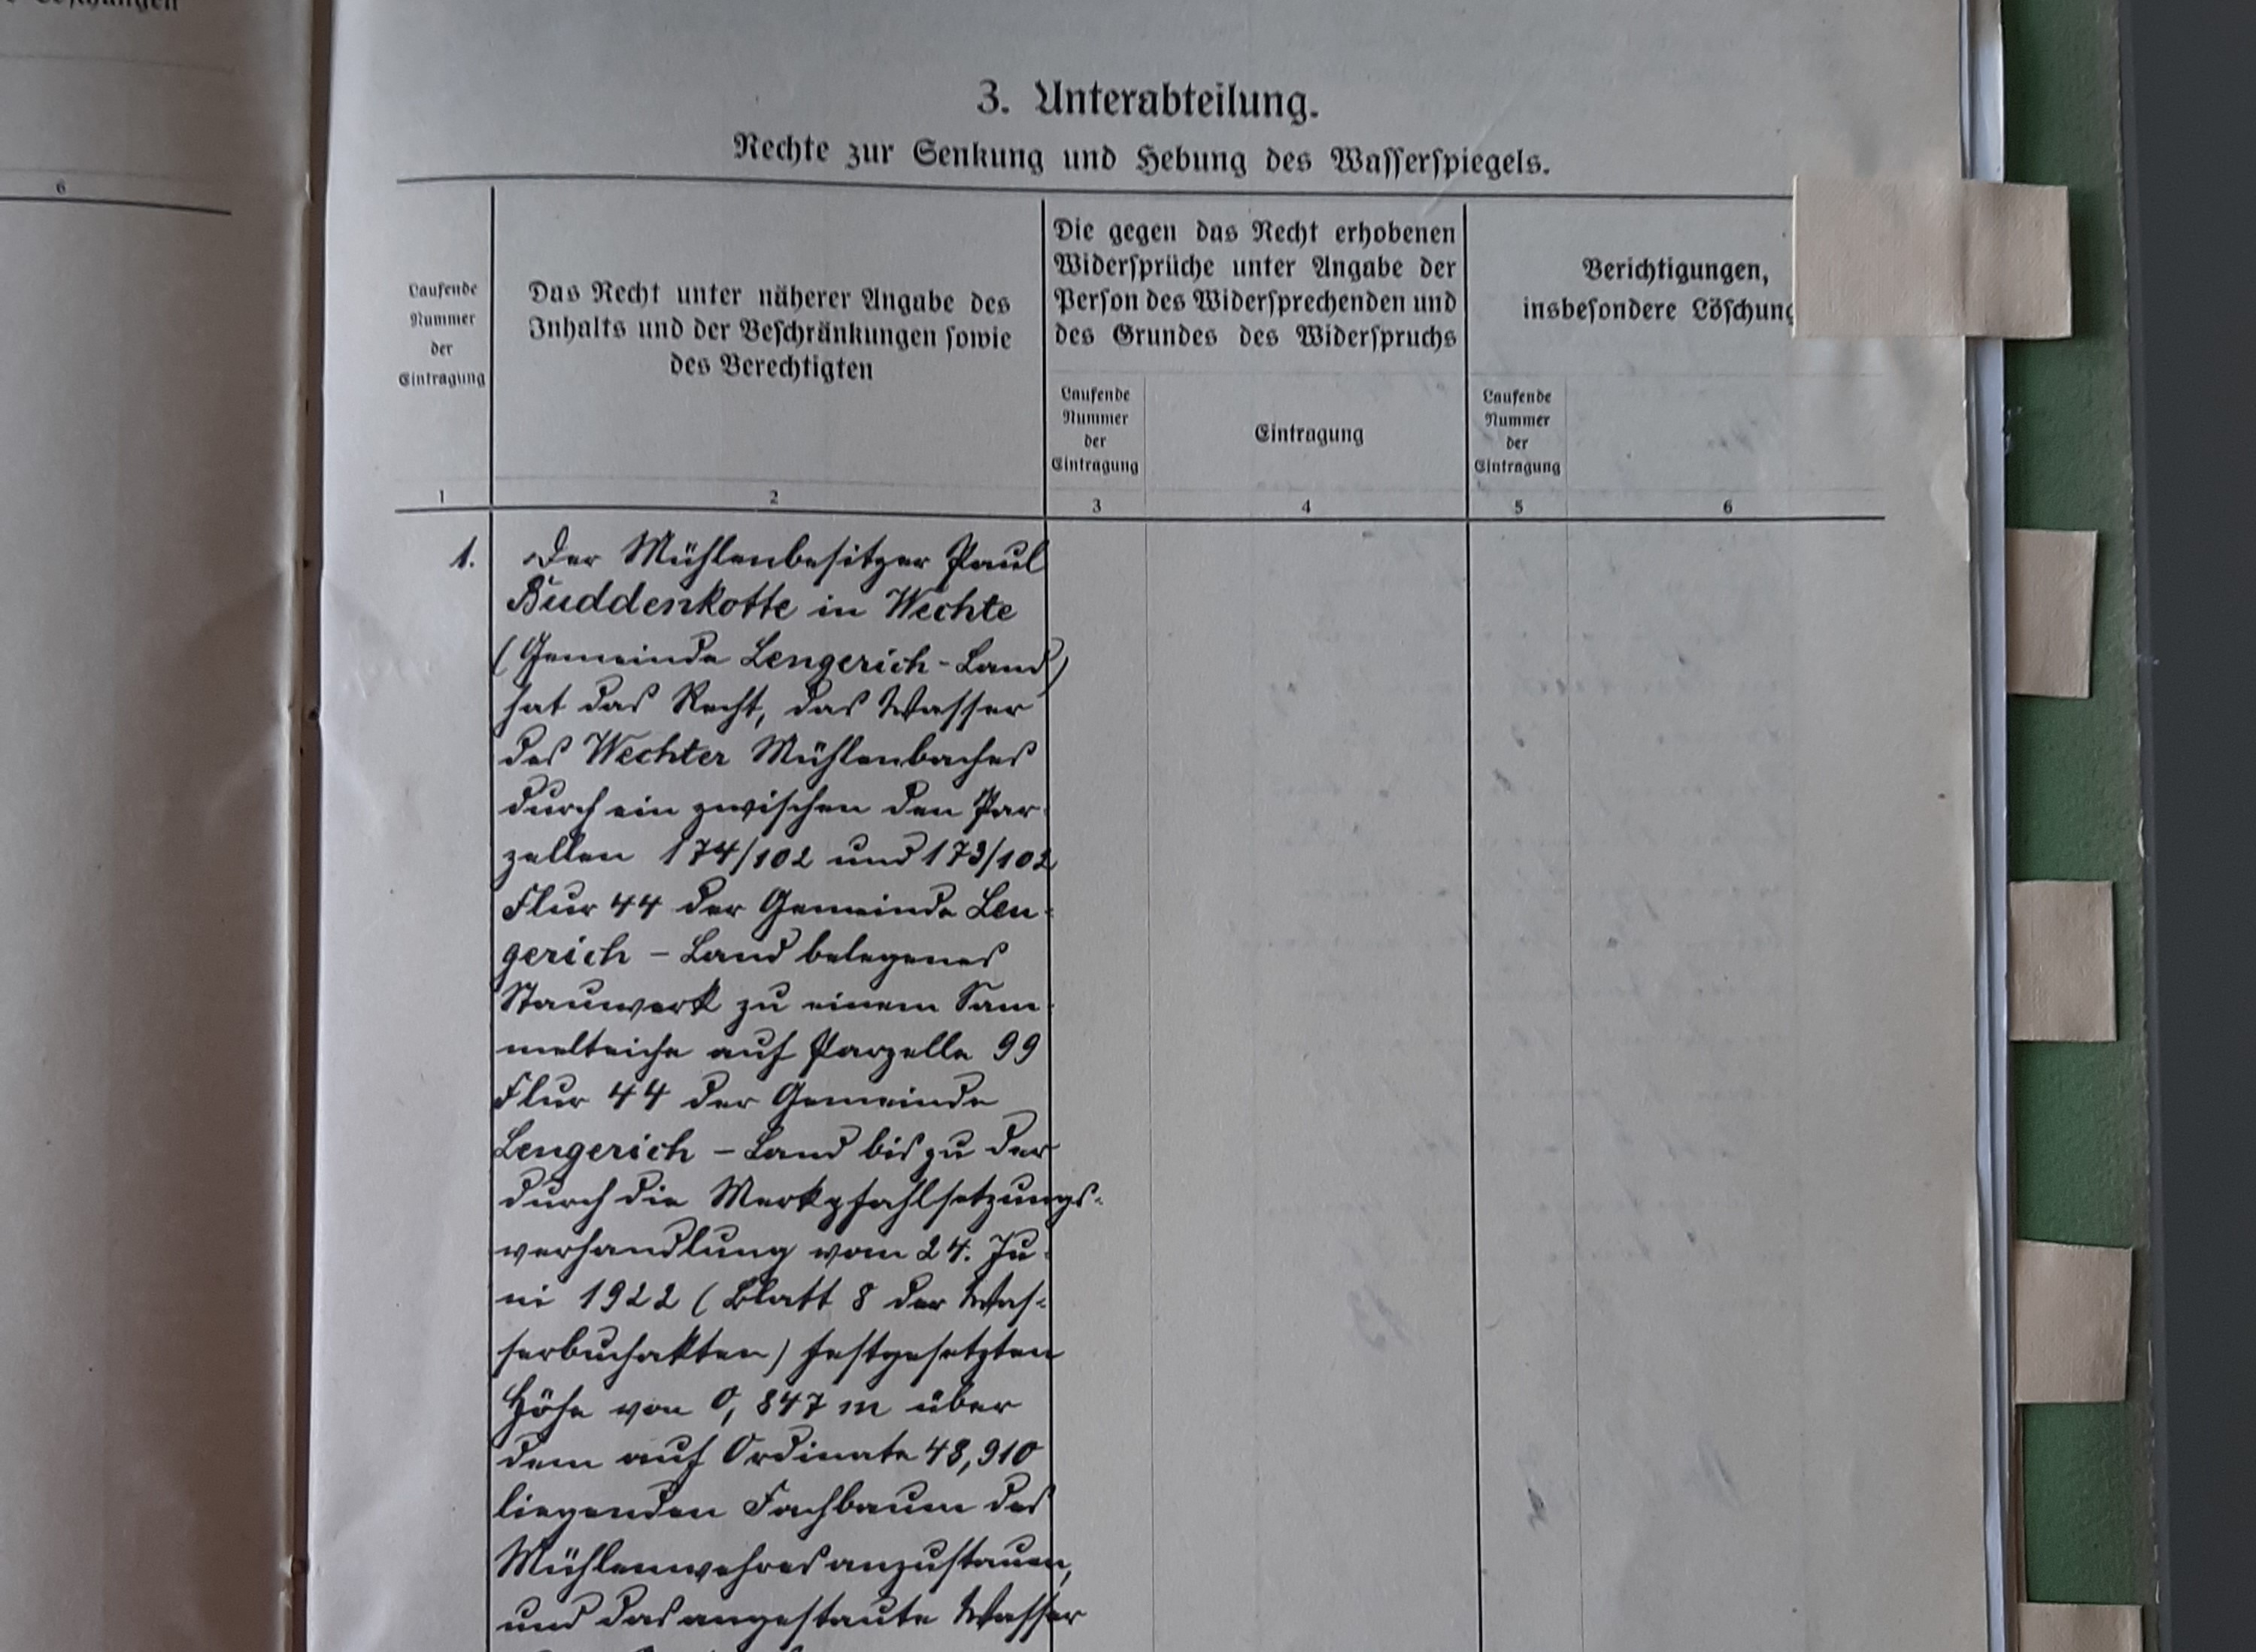 6
3. Unterabteilung.
Rechte zur Senkung und Hebung des Wasserspiegels.
Laufende
Nummer
der
Eintragung
Das Recht unter näherer Angabe des
Inhalts und der Beschränkungen sowie
des Berechtigten
Die gegen das Recht erhobenen
Widersprüche unter Angabe der
Person des Widersprechenden und
des Grundes des Widerspruchs
Laufende
Nummer
der
Eintragung
Eintragung
Berichtigungen,
insbesondere Löschung
Laufende
Nummer
der
Eintragung
1 2 3 4 5 6
1. Der Mühlenbesitzer Paul
Buddenkotte in Wechte
(Gemeinde Lengerich-Land)
hat das Recht, das Wasser
des Wechter Mühlenbaches
durch ein zwischen den Par-
zellen 174/102 und 173/102
Flur 44 der Gemeinde Len-
gerich - Land belegenes
Stauwerk zu einem Sam-
melteiche auf Parzelle 99
Flur 44 der Gemeinde
Lengerich - Land bis zu der
durch die Merkpfahlsetzungs-
verhandlung vom 24. Ju-
ni 1922 (Blatt 8 der Was-
serbuchakten) festgesetzten
Höhe von 0,847 m über
dem auf Ordinate 48,910
liegenden Fachbaum des
Mühlenwehres anzustauen,
und das angestaute Wasser